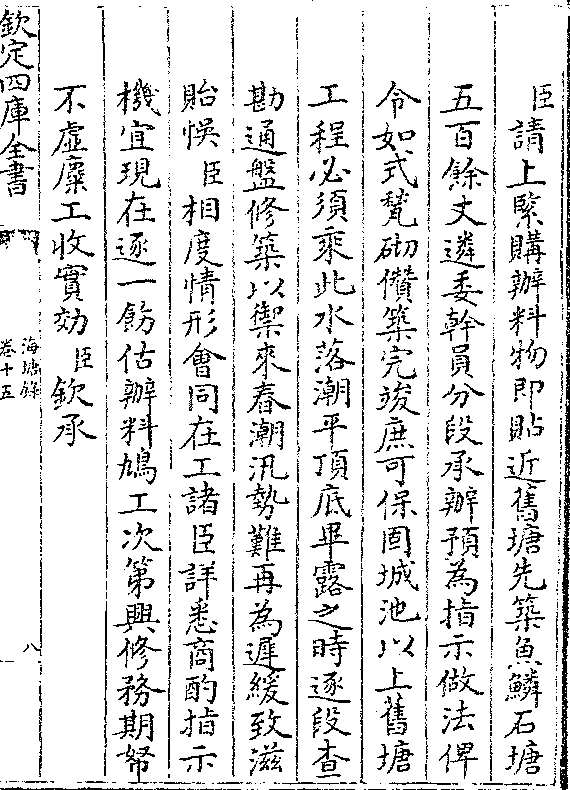 臣請上緊購辦料物即貼近舊塘先築魚鱗石塘
五百餘丈遴委幹員分段承辦預為指示做法俾
令如式甃砌儧築完竣庶可保固城池以上舊塘
工程必須乘此水落潮平頂底畢露之時逐段查
勘通盤修築以禦來春潮汛勢難再為遲緩致滋
貽悞臣相度情形會同在工諸臣詳悉商酌指示
機宜現在逐一飭估辦料鳩工次第興修務期帑
不虛糜工收實効臣欽承
欽定四庫全書
海塘錄
卷十五
八